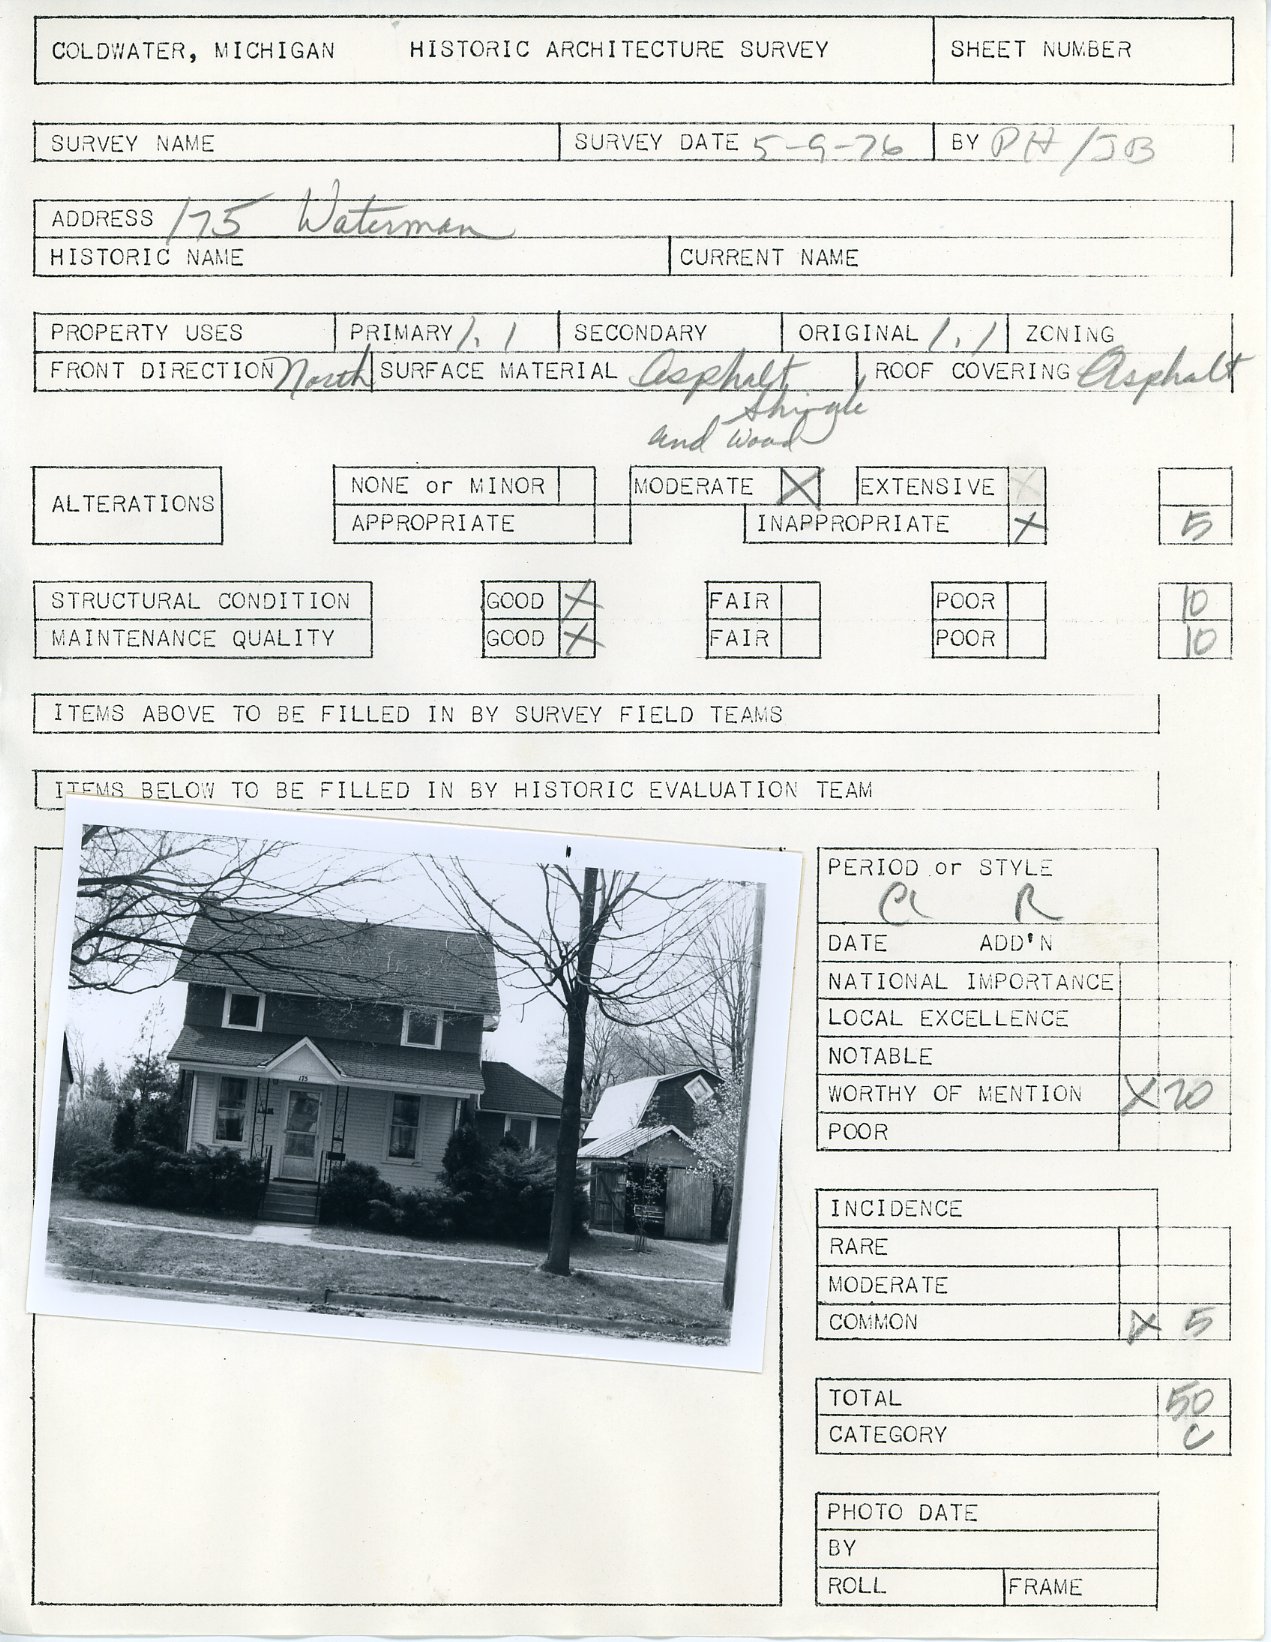 COLDWATER, MICHIGAN HISTORIC ARCHITECTURE SURVEY SHEET NUMBER
SURVEY NAME SURVEY DATE 5-9-76 BY PH/JB
ADDRESS 175 Waterman
HISTORIC NAME CURRENT NAME
PROPERTY USES PRIMARY 1.1 SECONDARY ORIGINAL 1.1 ZONING
FRONT DIRECTION North SURFACE MATERIAL Asphalt ROOF COVERING Asphalt
Shingle
and Wood
ALTERATIONS NONE or MINOR MODERATE X EXTENSIVE X
APPROPRIATE INAPPROPRIATE X 5
STRUCTURAL CONDITION GOOD X FAIR POOR 10
MAINTENANCE QUALITY GOOD X FAIR POOR 10
ITEMS ABOVE TO BE FILLED IN BY SURVEY FIELD TEAMS
ITEMS BELOW TO BE FILLED IN BY HISTORIC EVALUATION TEAM
175
PERIOD or STYLE
Cl R
DATE ADD'N
NATIONAL IMPORTANCE
LOCAL EXCELLENCE
NOTABLE
WORTHY OF MENTION X 20
POOR
INCIDENCE
RARE
MODERATE
COMMON X 5
TOTAL 50
CATEGORY C
PHOTO DATE
BY
ROLL FRAME